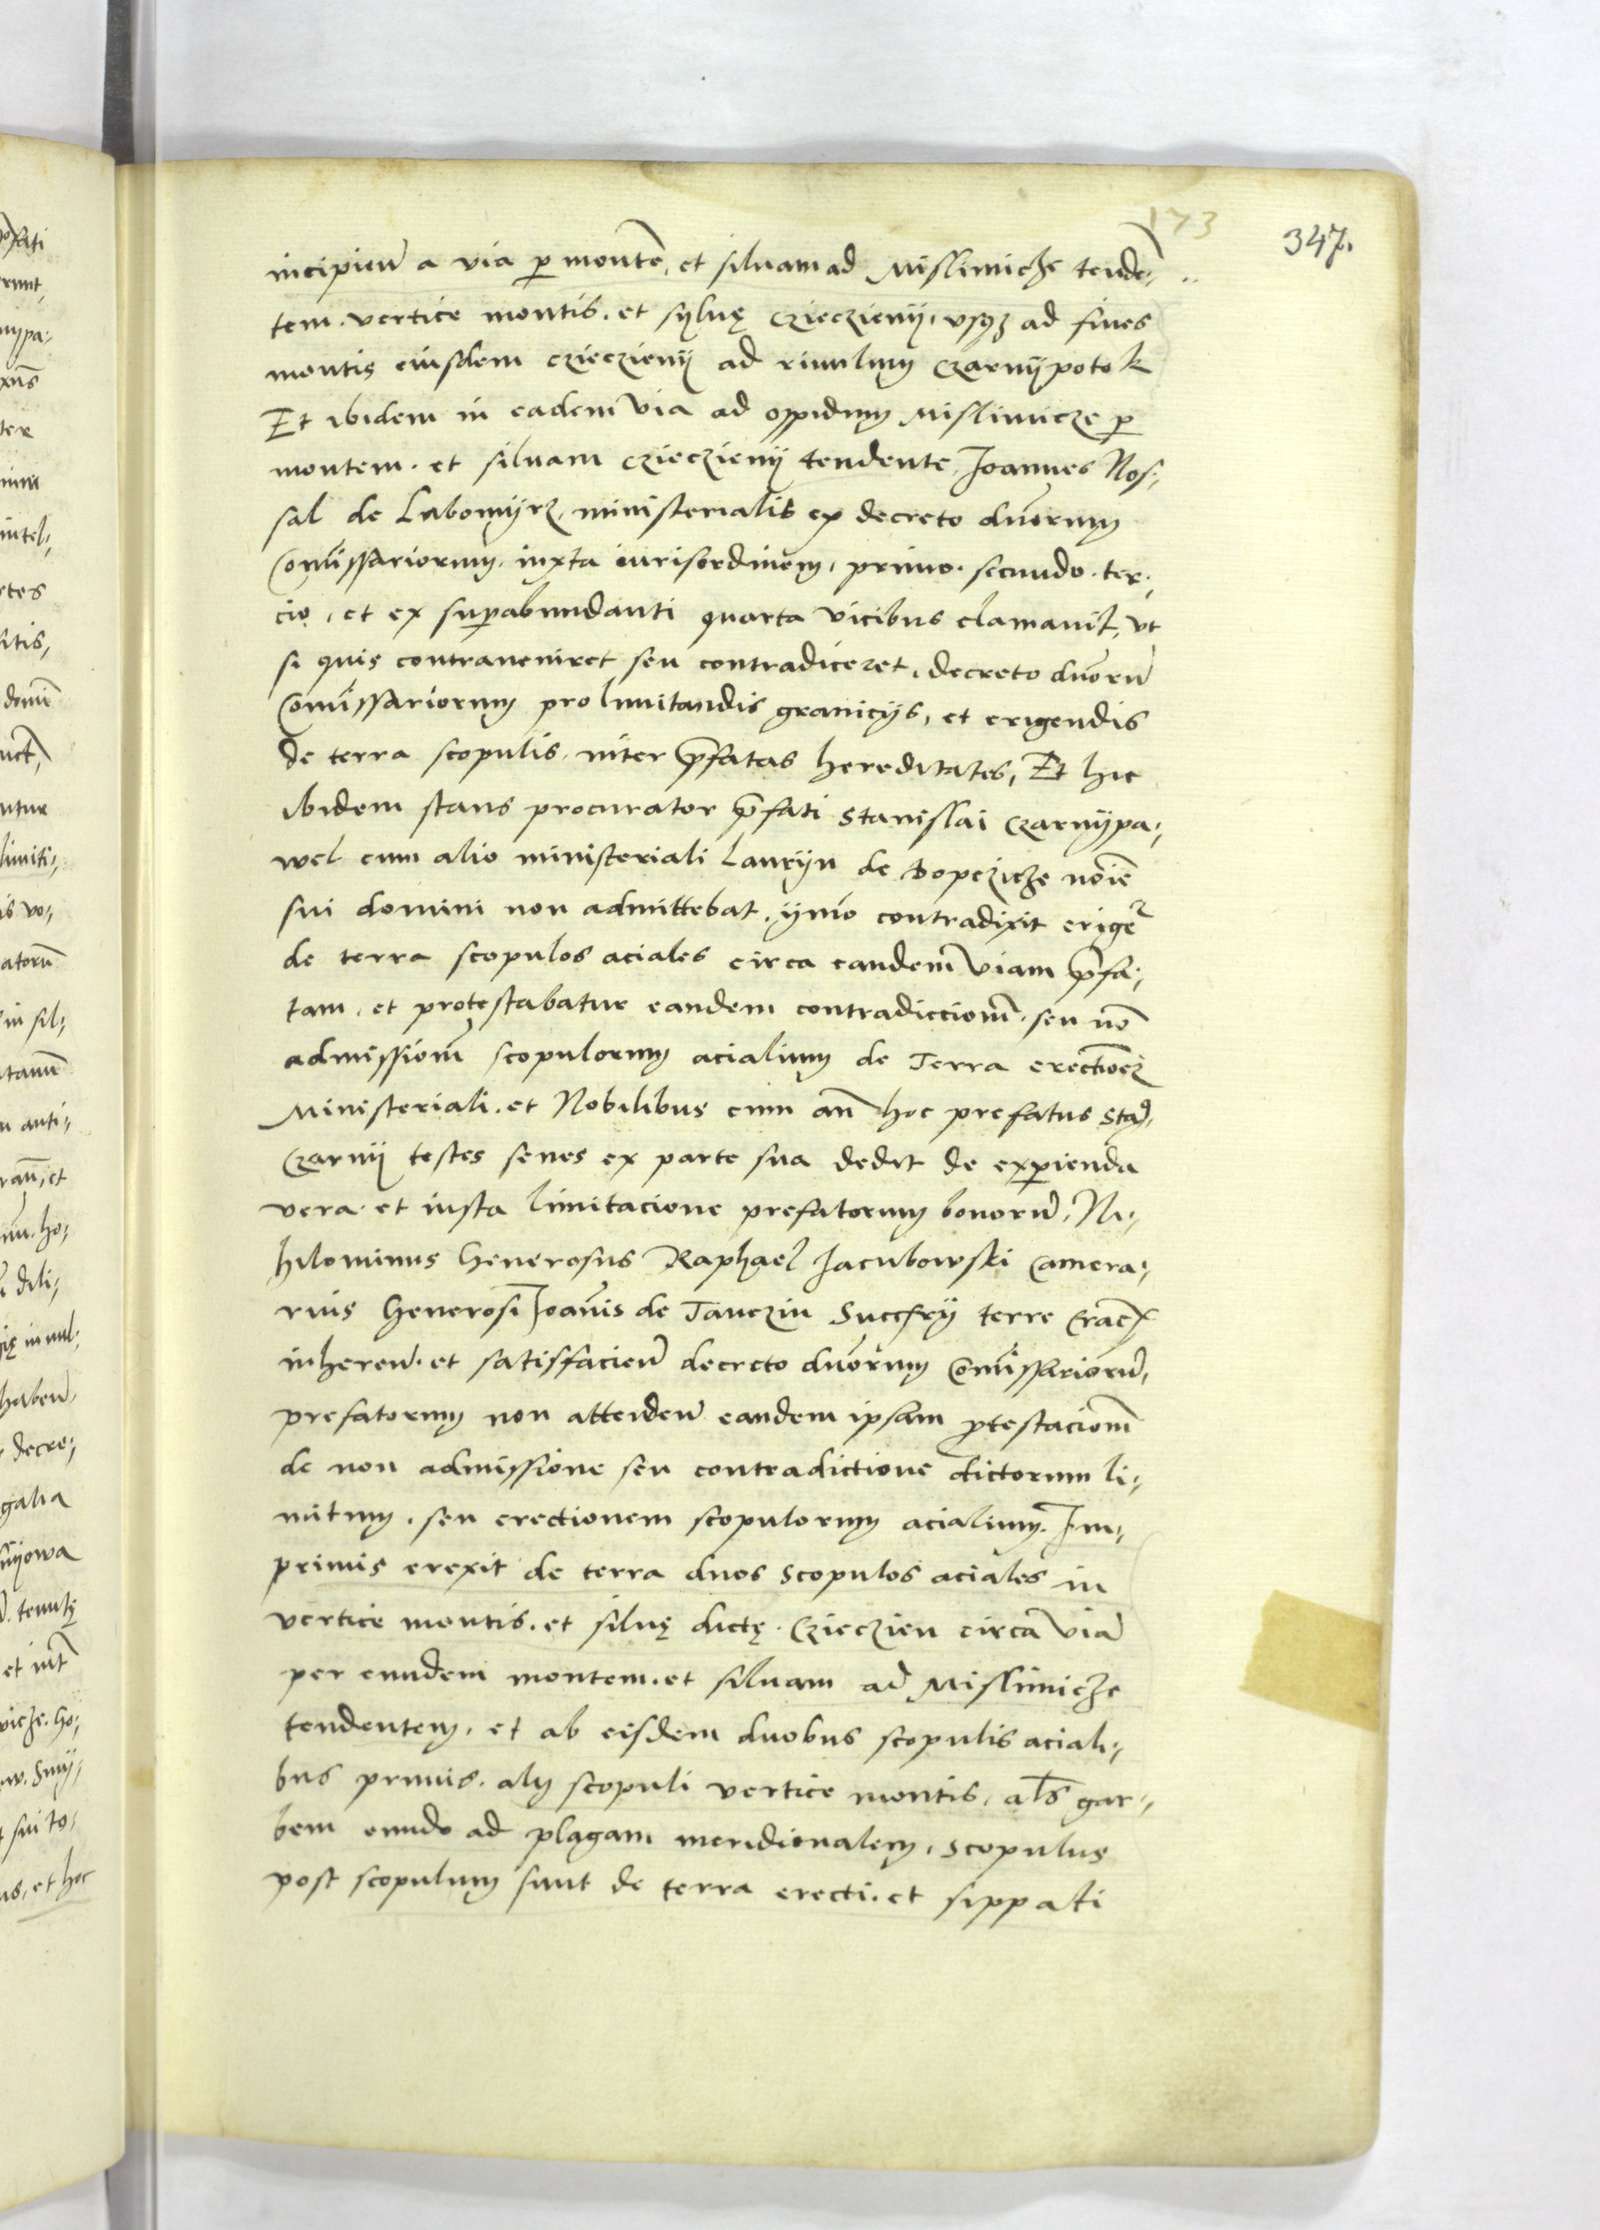 173
347.
incipien̄ a via p montē, et siluam ad Mislimicze tendē-
tem. vertice montis. et syluę Czieczienij, vsqz ad fines
montis eiusdem Czieczienij ad riuulum Czarnijpotok
Et ibidem in eadem via ad oppidum Mislimicze p
montem. et siluam Czieczienij tendente, Joannes Nos-
sal de Lubomijrz, ministerialis ex decreto dn̄orum
Com̄issariorum. iuxta iurisordinem, primo. secundo. ter-
cio, et ex supabundanti quarta vicibus clamauit, vt
si quis contraueniret seu contradiceret, decreto dn̄orū
Com̄issariorum pro limitandis granicijs, et erigendis
de terra scopulis, inter p̄fatas hereditates, Et hic
ibidem stans procurator p̄fati Stanislai Czarnijpa-
wel cum alio ministeriali Laurijn de Dopczicze noīe
sui domini non admittebat, ijmo contradixit eriger̄
de terra scopulos aciales circa eandem viam p̄fa-
tam, et protestabatur eandem contradiccionē. seu nō
admissionē scopulorum acialium de Terra erectionez
Ministeriali. et Nobilibus cum an̄ hoc prefatus Stan̄.
Czarnij testes senes ex parte sua dedit de expienda
vera. et iusta limitacione prefatorum bonorū, Ni-
hilominus Generosus Raphael Jacubowski Camera-
rius Generosi Joan̄is de Tanczin Succ̄rij terre Crac̄
inheren̄. et satisfacien̄ decreto dn̄orum Com̄issariorū,
prefatorum non attenden̄ eandem ipsam ptestacionē
de non admissione seu contradictione dictorum li-
mitum. seu erectionem scopulorum acialium. Im-
primis erexit de terra duos scopulos aciales in
vertice montis. et siluę dictę. Czieczien circa viā
per eundem montem. et siluam ad Mislimicze
tendentem, et ab eisdem duobus scopulis aciali-
bus primis. alij scopuli vertice montis, al̄s gar-
bem eundo ad plagam meridionalem, scopulus
post scopulum sunt de terra erecti. et sippati